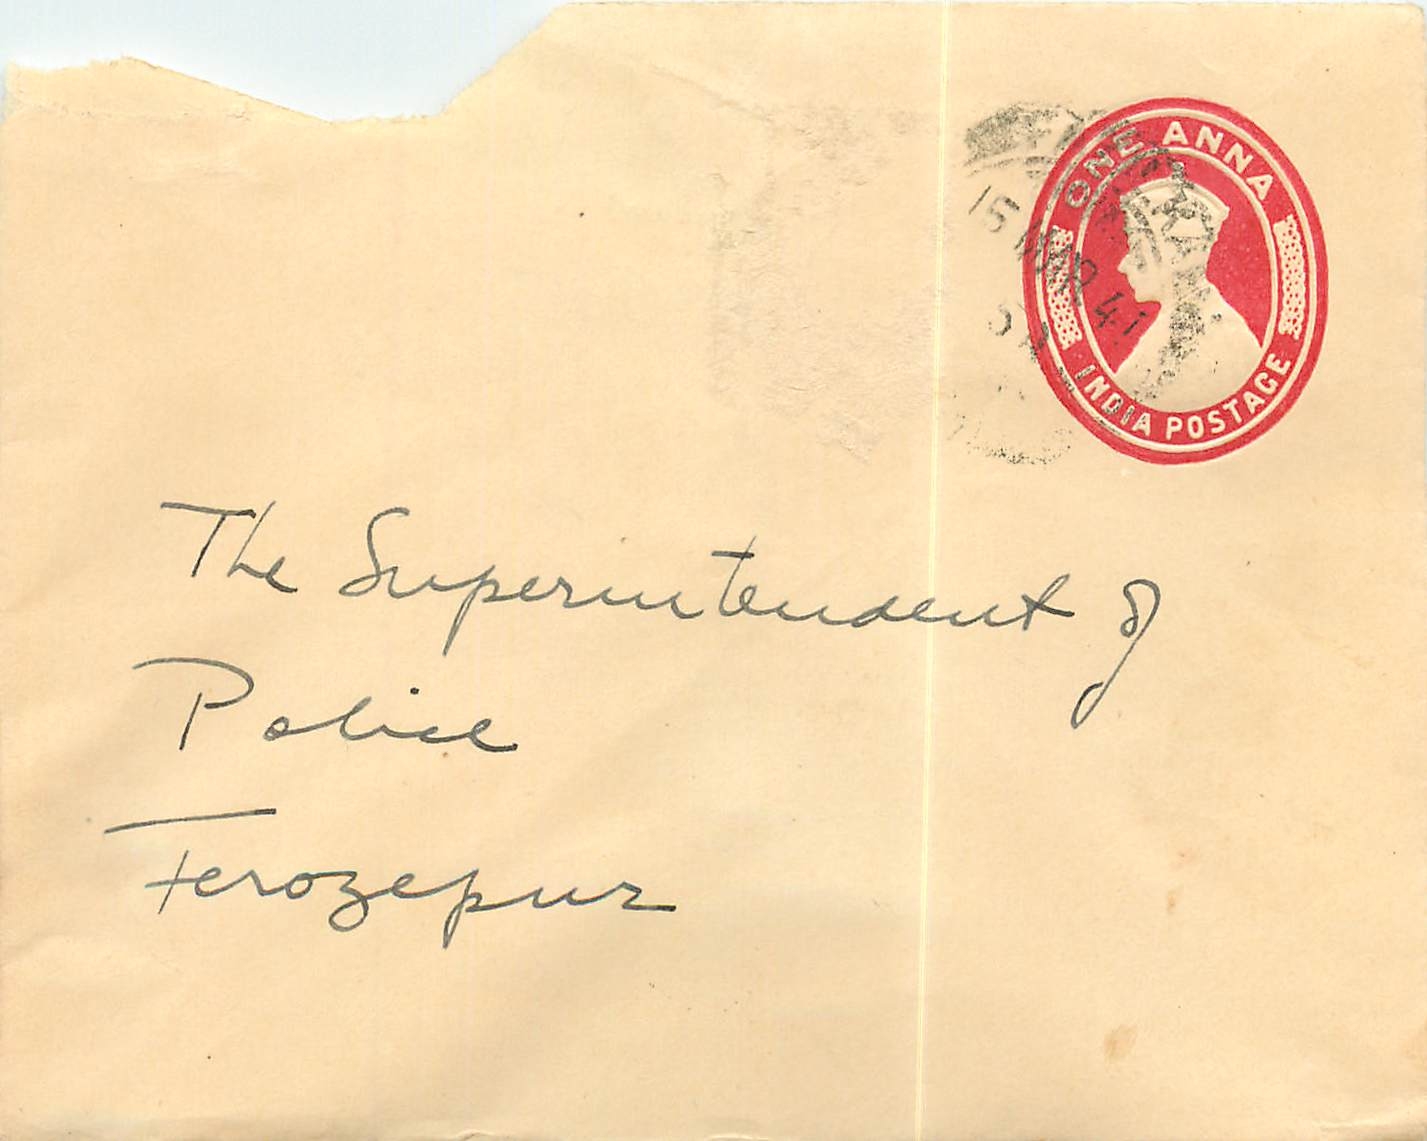 ONE ANNA
15 MAR 41
INDIA POSTAGE
The Superintendent of
Police
Ferozepur